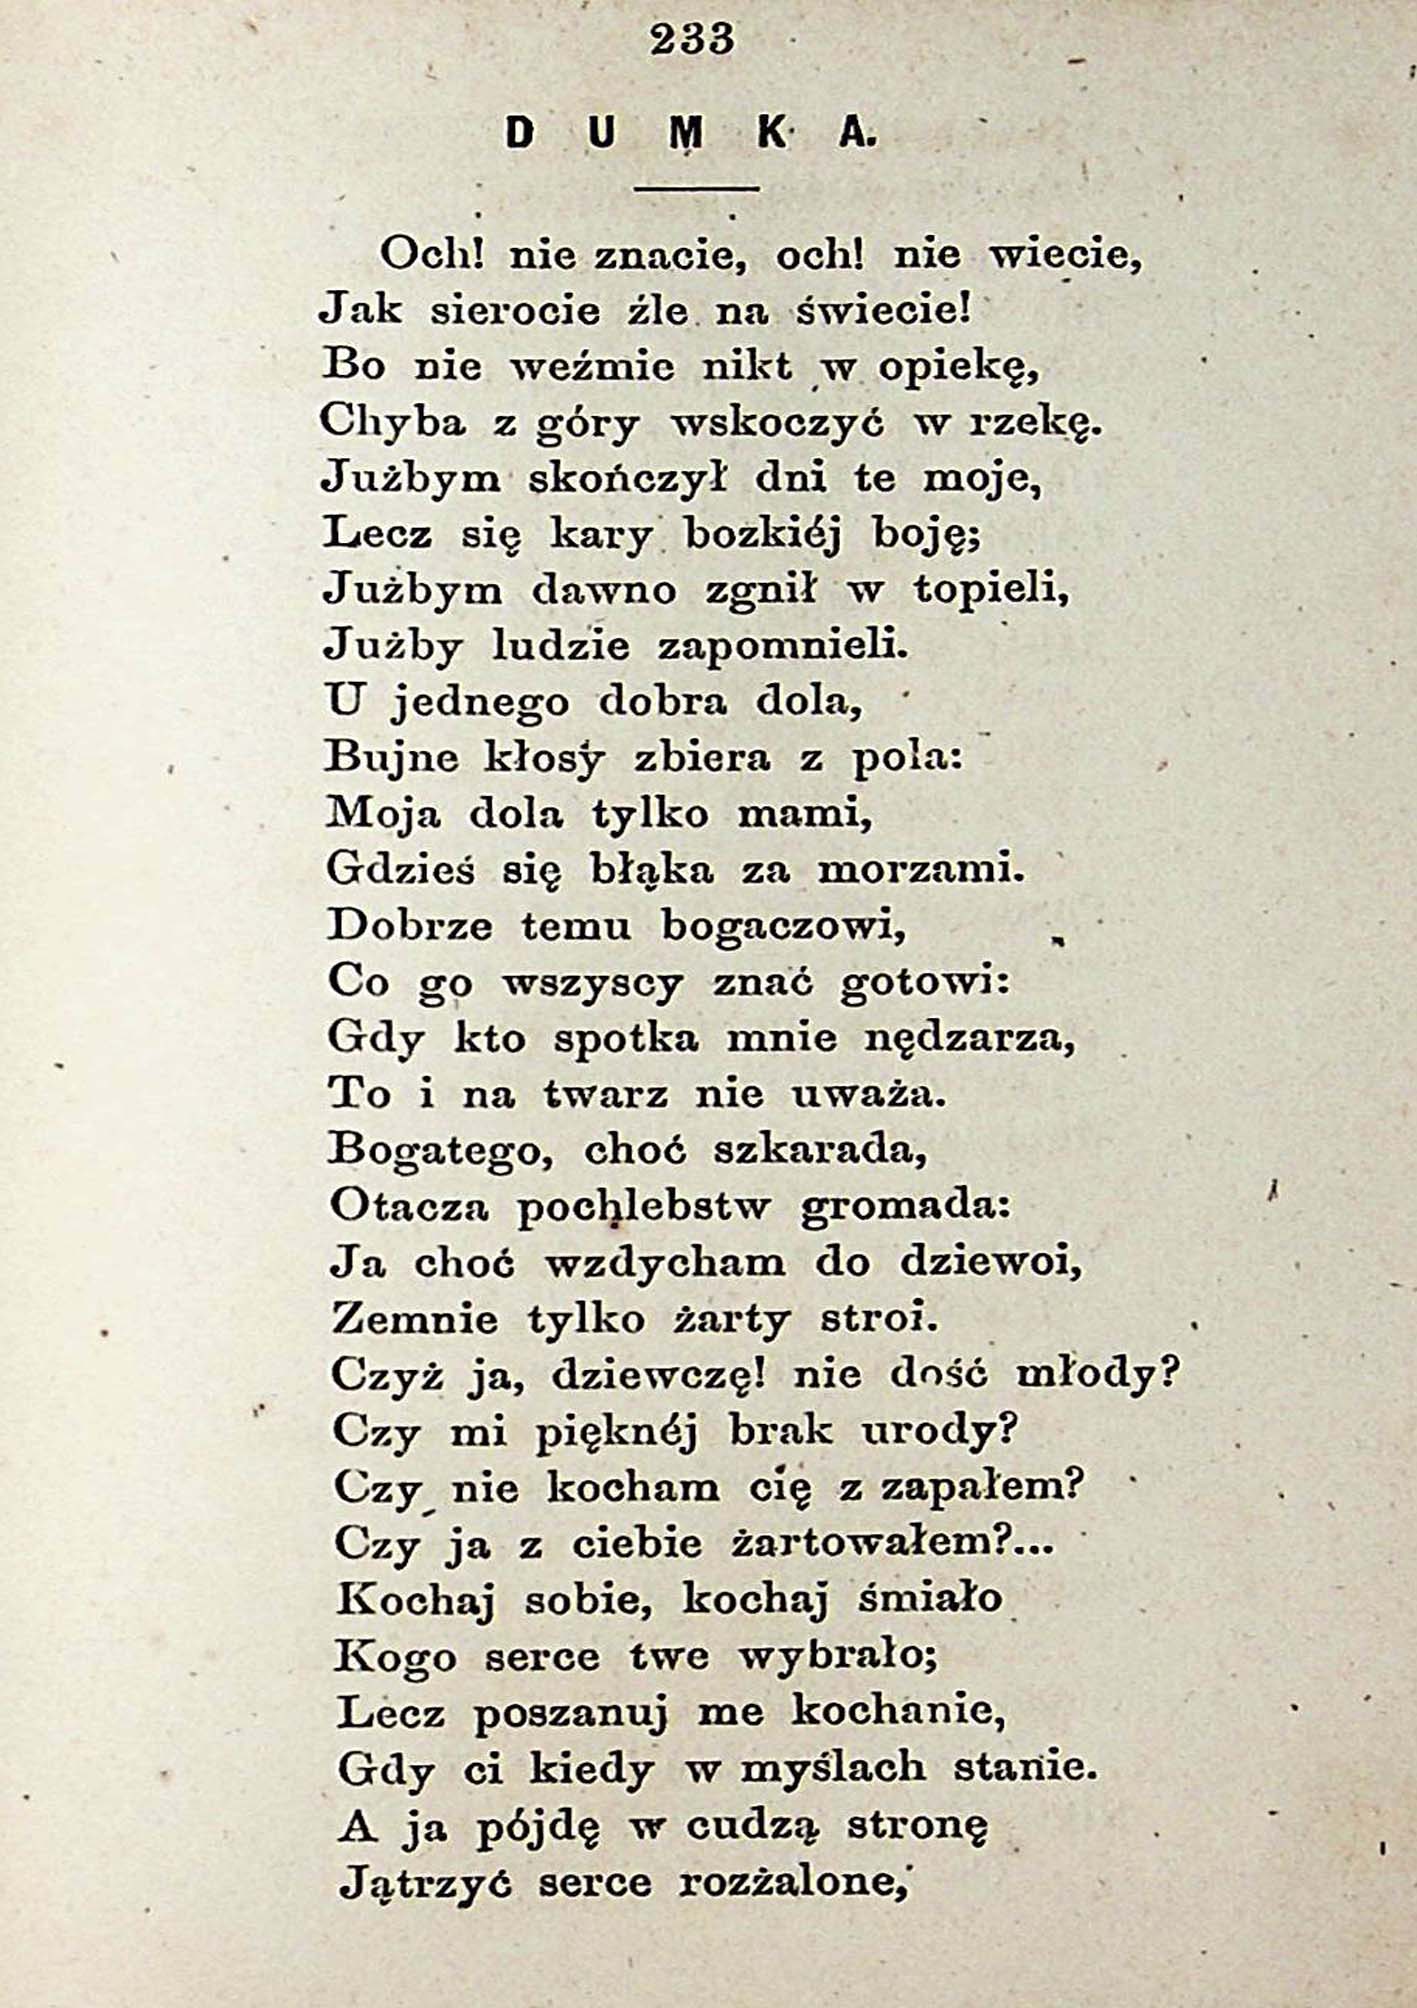 233
D U M K A.
Och! nie znacie, och! nie wiecie,
Jak sierocie źle na świecie!
Bo nie weźmie nikt w opiekę,
Chyba z góry wskoczyć w rzekę.
Jużbym skończył dni te moje,
Lecz się kary bozkiéj boję;
Jużbym dawno zgnił w topieli,
Jużby ludzie zapomnieli.
U jednego dobra dola,
Bujne kłosy zbiera z pola:
Moja dola tylko mami,
Gdzieś się błąka za morzami.
Dobrze temu bogaczowi,
Co go wszyscy znać gotowi:
Gdy kto spotka mnie nędzarza,
To i na twarz nie uważa.
Bogatego, choć szkarada,
Otacza pochlebstw gromada:
Ja choć wzdycham do dziewoi,
Zemnie tylko żarty stroi.
Czyż ja, dziewczę! nie dość młody?
Czy mi pięknéj brak urody?
Czy nie kocham cię z zapałem?
Czy ja z ciebie żartowałem?...
Kochaj sobie, kochaj śmiało
Kogo serce twe wybrało;
Lecz poszanuj me kochanie,
Gdy ci kiedy w myślach stanie.
A ja pójdę w cudzą stronę
Jątrzyć serce rozżalone,